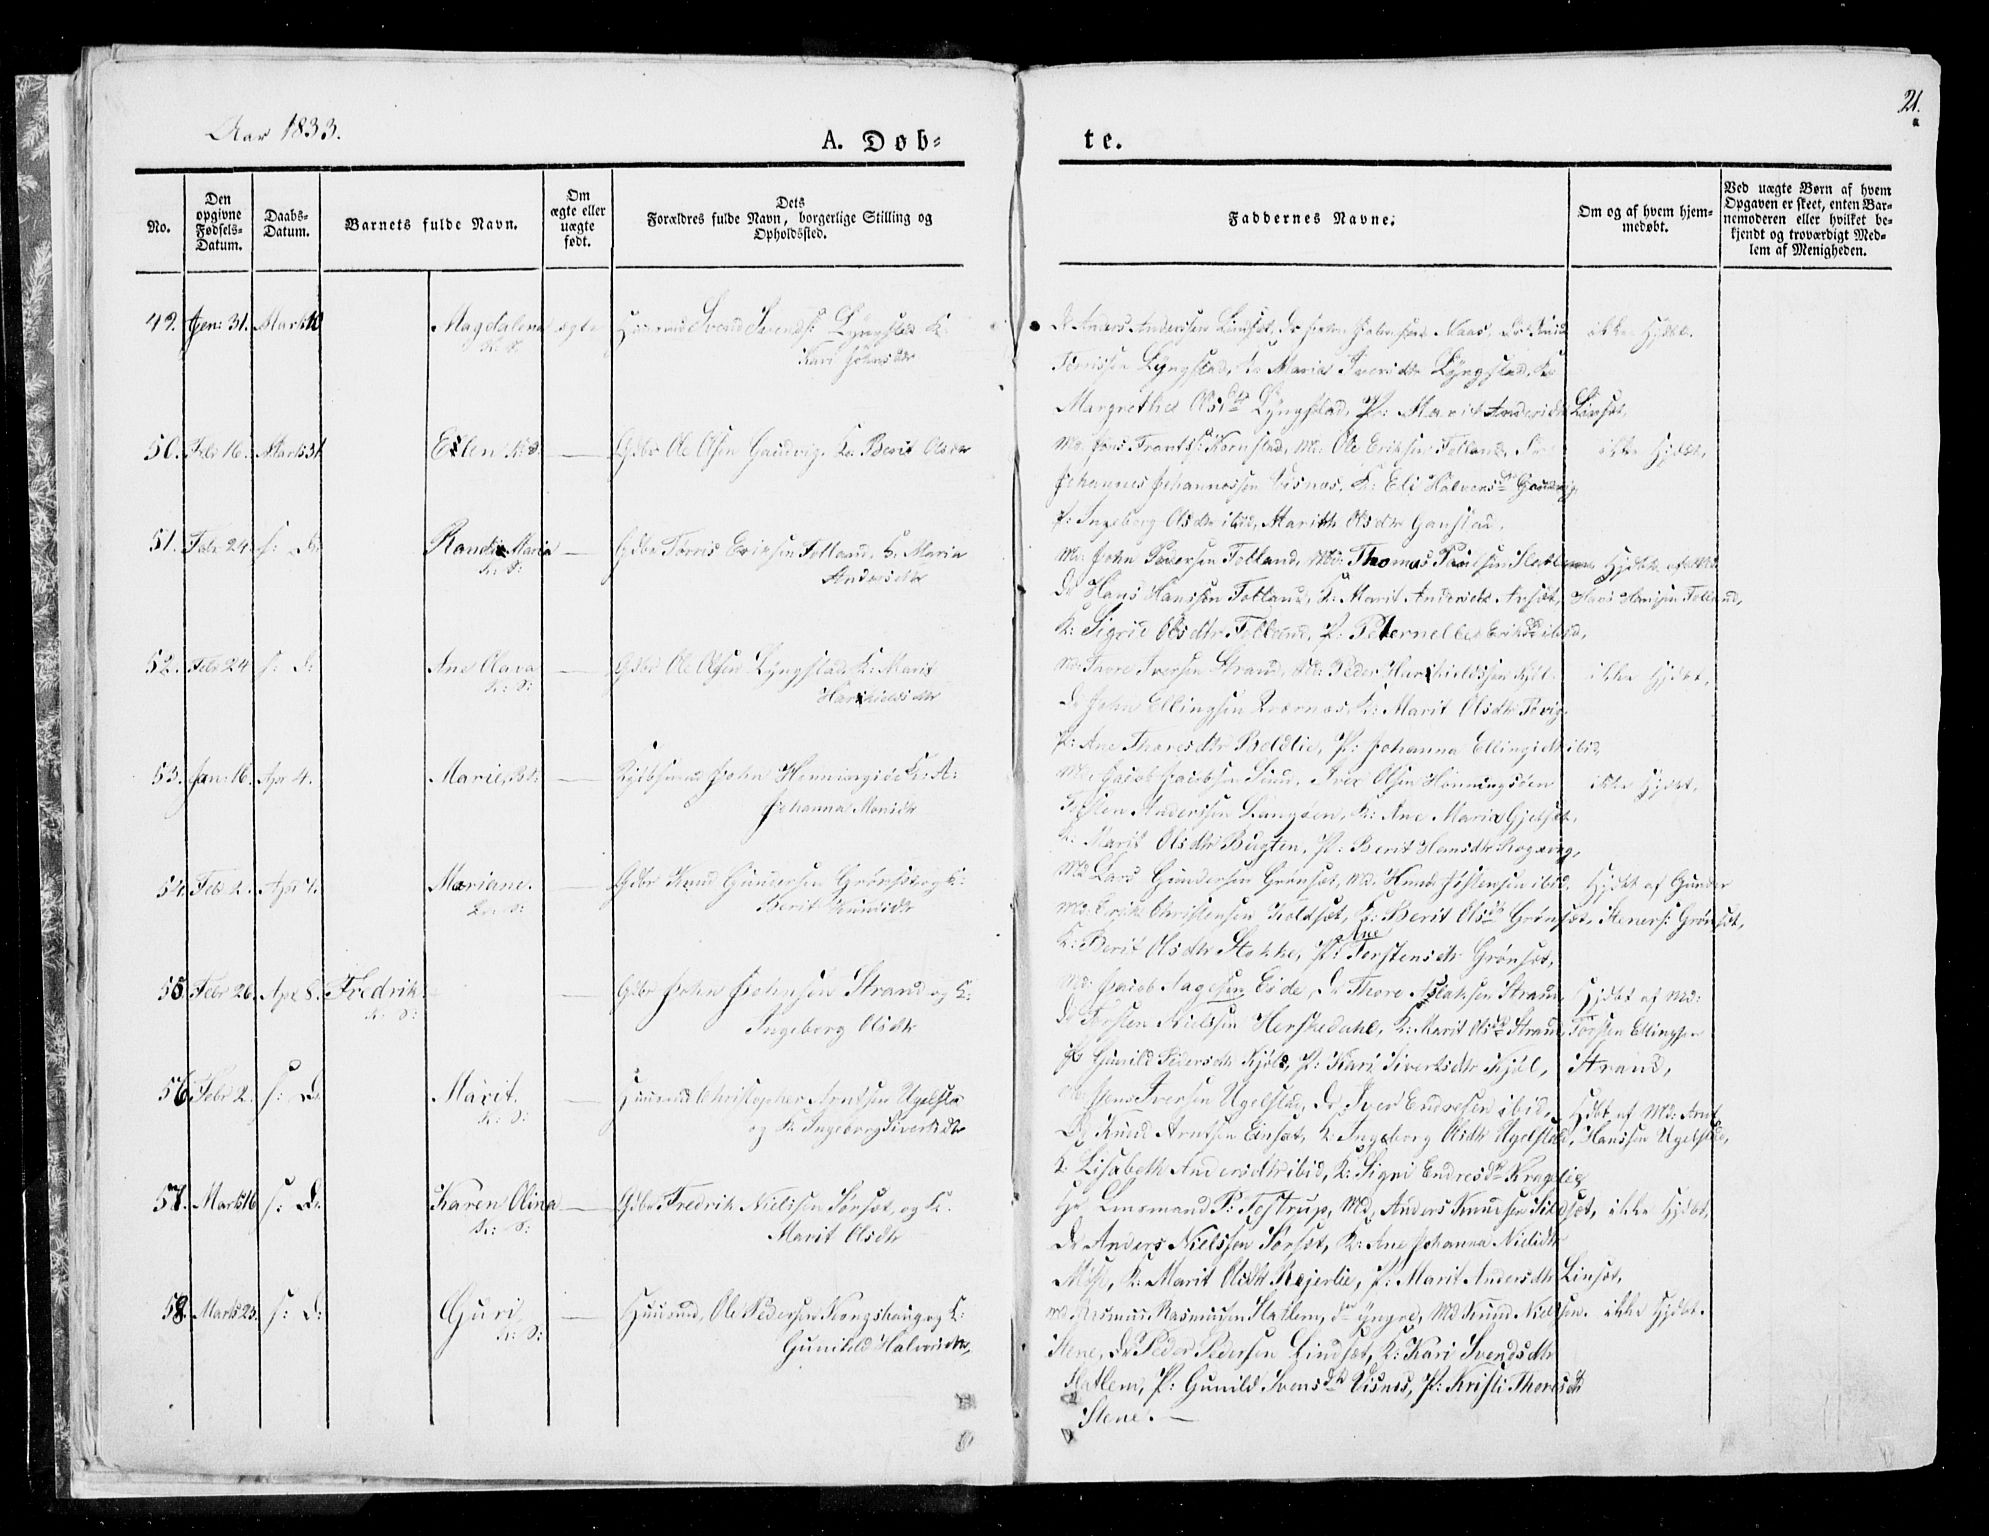 21.
Aar 1833.
A. Døb-
te.
No.
Den opgivne Fødsels-Datum.
Daabs-Datum.
Barnets fulde Navn.
Om ægte eller uægte født.
Dets Forældres fulde Navn, borgerlige Stilling og Opholdssted.
Faddernes Navne.
Om og af hvem hjem-medøbt.
Ved uægte Børn af hvem Opgaven er skeet, enten Bar-nemoderen eller hvilket be-kjendt og troværdigt Med-lem af Menigheden.
49. Jan: 31. Marts 10 Magdalena ægte Svend Svends: Lyngstad K:
Kari Johnsdtr
Anders Anderssen Linset, Johnssen Naas,
Lyngstad, Maria Iversdtr Lyngstad,
Margrethe Olsdtr Lyngstad, P: Marit Andersdtr Linset,
ikke Hjdbt.
50. Feb: 16. Marts 31 Ellen K: D: — Gdbr Ole Olsen Gaudvig, K: Berit Olsdtr
Md: Jens Frants: Kornstad, Md: Ole Eriksen Folland,
Johannes Johannessen Visnes, K: Eli Halvorsdtr Gaudvig,
P: Ingeborg Olsdtr ibid, Marith Olsdtr Gaustad,
ikke Hjdbt,
51. Febr 24. s: D: Randi Maria — Gdbr Tørris Eriksen Folland, K: Maria
K: D: Andersdtr
Md: John Pedersen Folland, Md: Thomas Povlsen Flatlem
D: Hans Hanssen Folland, K: Marit Andersdtr
K: Sigrid Olsdtr Folland, P: Peternelle Eriksd ibid,
Hjdbt af Md:
Hans Hanssen Folland,
52. Febr 24 s: D: Ane Olava — Gdbr Ole Olsen Lyngstad, K: Marit
K: D: Harkielsdtr
Md: Thore Iversen Strand, Md: Peder Harkieldssen Kjøl
D: John Ellingsen K: Marit Olsdtr
P: Ane Thoresdtr Boldlie, P: Johanna Ellingsdtr ibid,
ikke Hjdbt,
53. Jan: 16. Apr 4. Marie, — John Henningsøe K: A:
Johanna Monsdtr
Md: Jacob Jacobsen Sund, Iver Olsen Hønningsøen
Torsten Anderssen Langøen, K: Ane Maria Gjelset,
K: Marit Olsdtr Bugten, P: Berit Hansdtr
ikke Hjdbt,
54. Febr 2. Apr 7. Mariane. — Gdbr Knud Gundersen Grønset og K:
K: D: Berit Knudsdtr
Md: Lars Gundersen Grønset, Md: Knud Jostensen ibid,
Md: Erik Christensen Koldset, K: Berit Olsdtr Grønset,
K: Berit Olsdtr Stokke, P: Ane Torstensdtr Grønset,
Hjdbt af Gunder
Steners: Grønset,
55. Febr 26. Apr 8. Fredrik — Gdbr John Johnsen Strand og K:
K: D: Ingeborg Olsdtr
Md: Jacob Aagesen Eide, D: Thore Aslaksen Strand,
D: Torsten Nielssen Herskedahl, K: Marit Olsdtr Strand,
P: Gunild Pedersdtr Kjøl, P: Kari Sivertsdtr Kjøl,
Hjdbt af Md:
Torsten Ellingsen
Strand,
56. Febr 2. s: D: Marit. — Christopher Arntsen Ugelsta
K: D: og K: Ingeborg Sivertsdtr
Md: Jens Iversen Ugelstad, D: Iver Endresen ibid,
D: Knud Arntsen Einset, K: Ingeborg Olsdtr Ugelstad,
K: Lisabeth Andersdtr ibid, K: Sigri Endresdtr Kraglie
Hjdbt af Md: Arnt
Hanssen Ugelstad,
57. Marts 16 s: D: Karen Olina — Gdbr Fredrik Nielssen Sørset, og K:
K: D: Marit Olsdtr
Hr Lensmand P: Tostrup, Md: Anders Knudsen Sildset,
D: Anders Nielssen Sørset, K: Ane Johanna Nielsdtr
K: Marit Olsdtr Rejerlie, P: Marit Andersdtr Linset,
ikke Hjdbt,
58. Marts 25. s: D: Guri — Huusmd, Ole Pedersen Kongshaug og K:
K: D: Gunild Halvorsdtr,
Md: Rasmus Rasmussen Flatlem, den yngre, Md Knud Nielsen
Stene, D: Peder Pedersen Lindset, K: Kari Svendsdtr
Flatlem, P: Gunild Svensdtr Visnes, P: Kristi Thoresdtr
Stene. —
ikke Hjdbt.